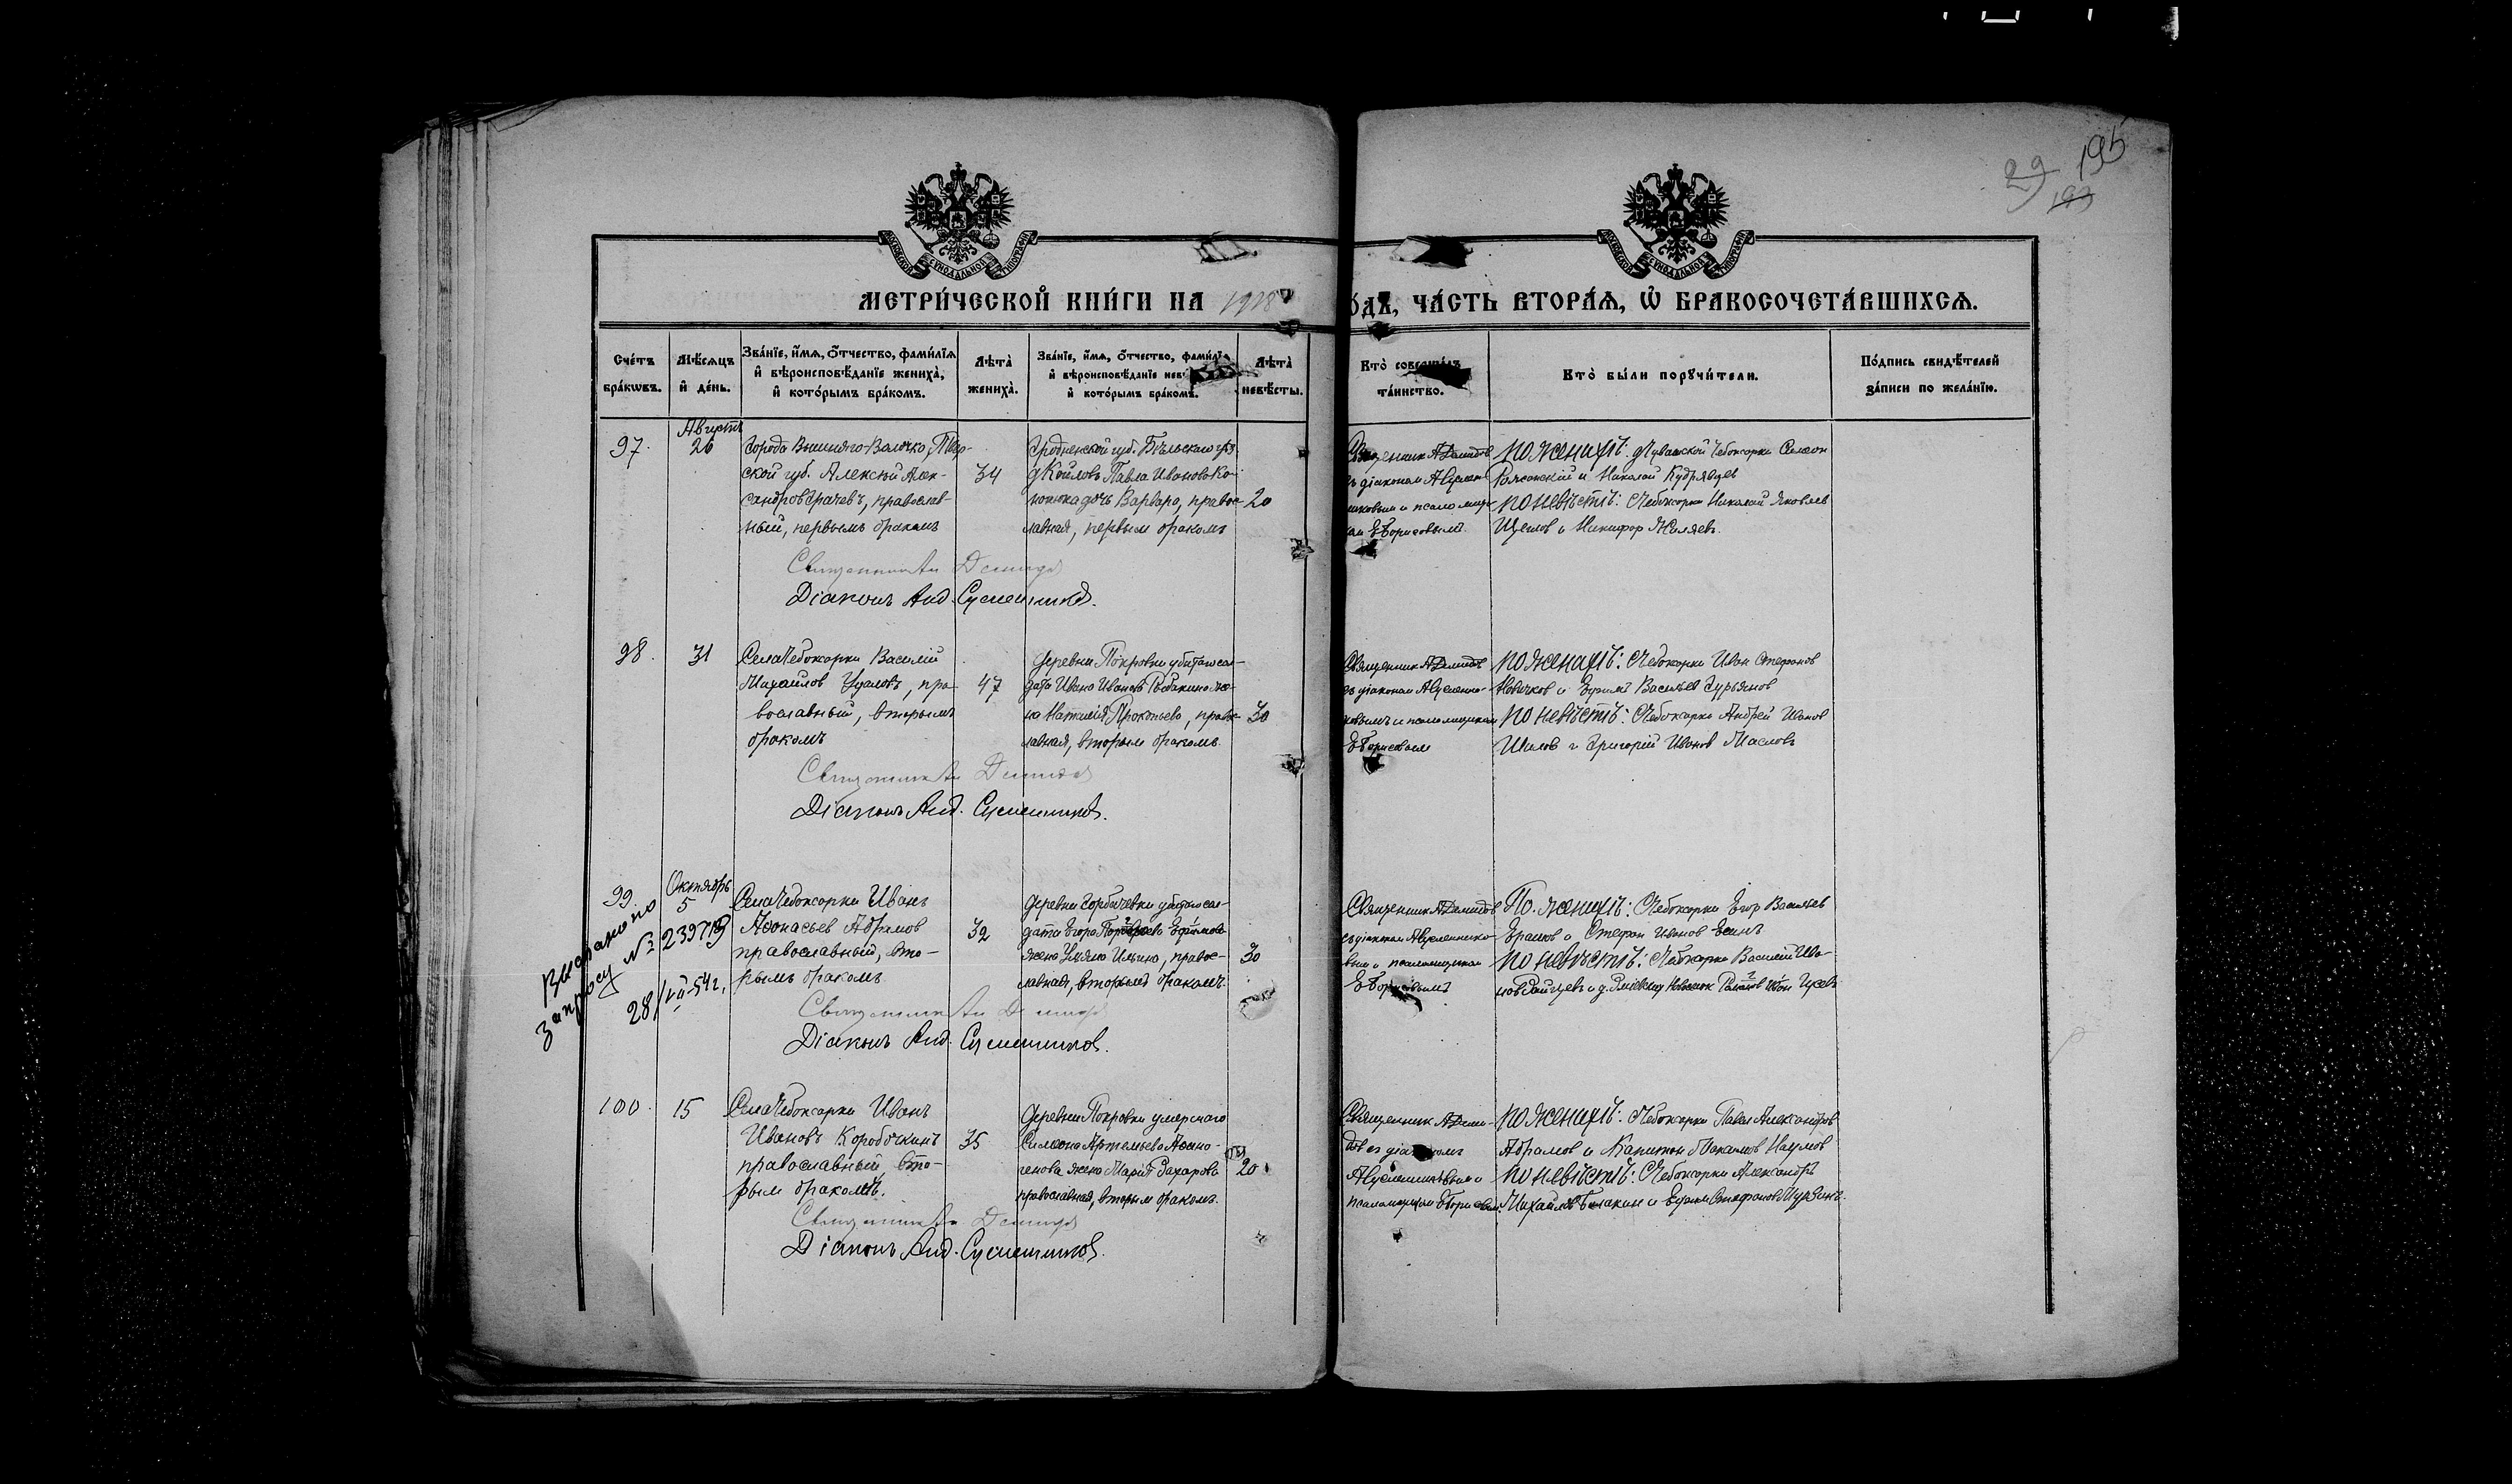 195
29
193
МОСКОВСКОЙ СѴНОДАЛЬНОЙ ТИПОГРАФІИ
МОСКОВСКОЙ СѴНОДАЛЬНОЙ ТИПОГРАФІИ
МЕТРИ́ЧЕСКОЙ КНИ́ГИ НА 1918
ГО́ДЪ, ЧА́СТЬ ВТОРА́Ѧ, Ѿ БРАКОСОЧЕТА́ВШИХСѦ.
Сче́тъ бра́кѡвъ.
Мѣ́сѧцъ и҆ де́нь.
Зва́нїе, и҆́мѧ, ѻ҆́тчество, фами́лїѧ
и҆ вѣроисповѣ́данїе жениха̀,
и҆ кото́рымъ бра́комъ.
Лѣта̀ жениха̀.
Зва́нїе, и҆́мѧ, ѻ҆́тчество, фами́лїѧ
и҆ вѣроисповѣ́данїе невѣ
и҆ кото́рымъ бра́комъ.
Лѣта̀ невѣ́сты.
Кто̀ соверши́лъ та́инство.
Кто̀ бы́ли порꙋчи́тели.
По́дпись свидѣ́телей
за́писи по жела́нїю.
97.
Августъ
26
Города Вышняго-Волочка, Твер-
ской губ. Алексѣй Алек-
сандров Грачевъ, православ-
ный, первымъ бракомъ
34
Гродненской губ. Бѣльскаго уѣз.
д. Павла Иванова Ко-
нонюка дочь Варвара, правос-
лавная, первым бракомъ
20
Священник А Демидов
съ діаконом А Сусленн-
иковым и псаломщи-
ком Е Борисовымъ.
По женихѣ: Чебоксарки Симеон
и Николай Кудрявцев
По невѣстѣ: с Чебоксарки Николай Яковлев
Щеглов и Никифор Жиляевъ.
Священник Ал Демидов
Діаконъ Анд. Сусленников.
98.
31
Села Чебоксарки Василій
Михайлов, пра-
вославный, вторымъ
бракомъ
47
Деревни Покровки убитаго сол-
дата Ивана Иванова Рыбакина же-
на Наталія Прокопьева, право-
лавная, вторым бракомъ.
30
Священник А Демидов
съ діаконом А Сусленни-
ковымъ и псаломщиком
Е Борисовым
По женихѣ: с Чебоксарки Иван Стефанов
Новичков и Ефимъ Васильев Гурьянов
По невѣстѣ: с Чебоксарки Андрей Иванов
Шилов и Григорій Иванов Масловъ
Священник Ал Демидов
Діаконъ Анд. Сусленников.
99.
Октябрь
5
Села Чебоксарки Иванъ
Аѳонасьев Абрамов
православный, вто-
рымъ бракомъ.
32
Деревни Горбачевки убитаго сол-
дата Егора Ефимова
жена Ульяна Ильина, правос-
лавная, вторымъ бракомъ.
30
Священник А Демидов
съ діаконом А Сусленнико-
вым и псаломщиком
Е Борисовымъ
По женихѣ: с Чебоксарки Егор Васильев
Ермаков и Стефан Иванов Есинъ
По невѣстѣ: с Чебоксарки Василій Ива-
нов и д. Иван Гусевъ
Выслано по
запросу № 239719
28/VII-54 г.
Священник Ал Демидов
Діаконъ Анд. Сусленников.
100.
15
Села Чебоксарки Иванъ
Ивановъ Коробочкинъ
православный, вто-
рым бракомъ.
35
Деревни Покровки умершаго
Симеона Артемьева Аѳано-
генова жена Марія Захарова
православная, вторым бракомъ.
20
Священник А Деми-
дов съ діакономъ
А Сусленниковым и
псаломщиком Е Борисовым.
По женихѣ: с Чебоксарки Павел Александров
Абрамов и Капитон Наумов
По невѣстѣ: с Чебоксарки Александръ
Михайлов и Ефим Стефанов
Священник Ал. Демидов
Діаконъ Анд. Сусленников.